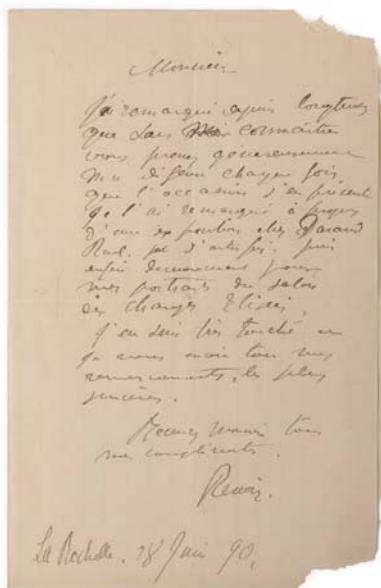 Monsieur
J'ai remarqué depuis longtemps
que sans me connaître
vous prenez généreusement
ma défense chaque fois
que l'occasion s'en présente
je l'ai remarqué à propos
d'une exposition chez Durand
Ruel. et d'autres fois. puis
enfin dernièrement pour
mes portraits du salon
des Champs Elisés,
j'en suis très touché et
je vous envoie tous mes
remerciements, les plus
sincères.
Recevez Monsieur tous
mes compliments.
Renoir.
La Rochelle. 18 Juin 90.